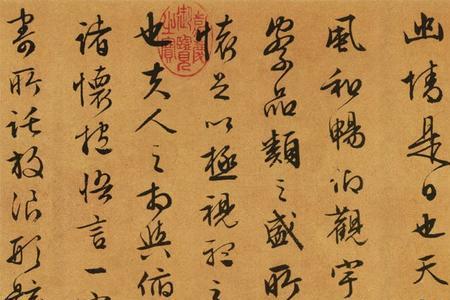 幽情是日也天
風和暢仰觀宇
察品類之盛所
懷足以極視聽之
也夫人之相與俯
諸懷抱悟言一室
寄所託放浪形骸
嘉慶御覽之寶